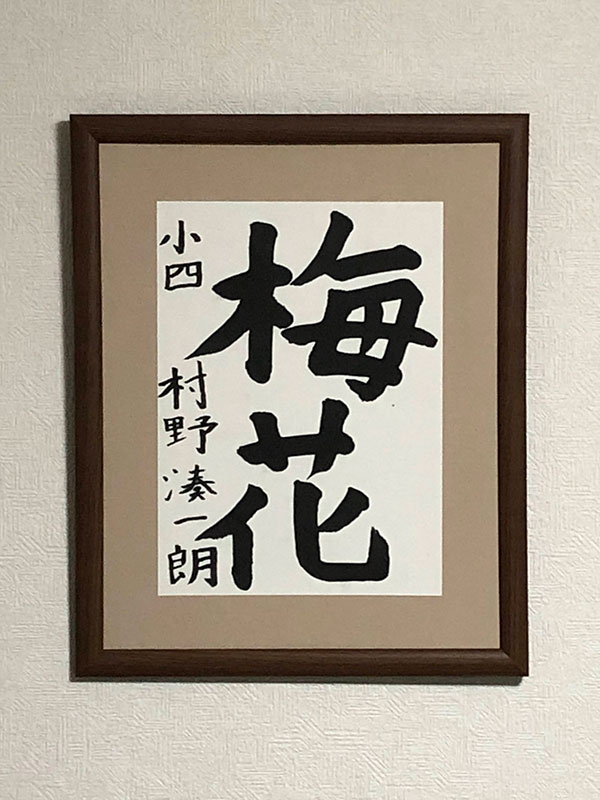 梅花
小四 村野湊一朗